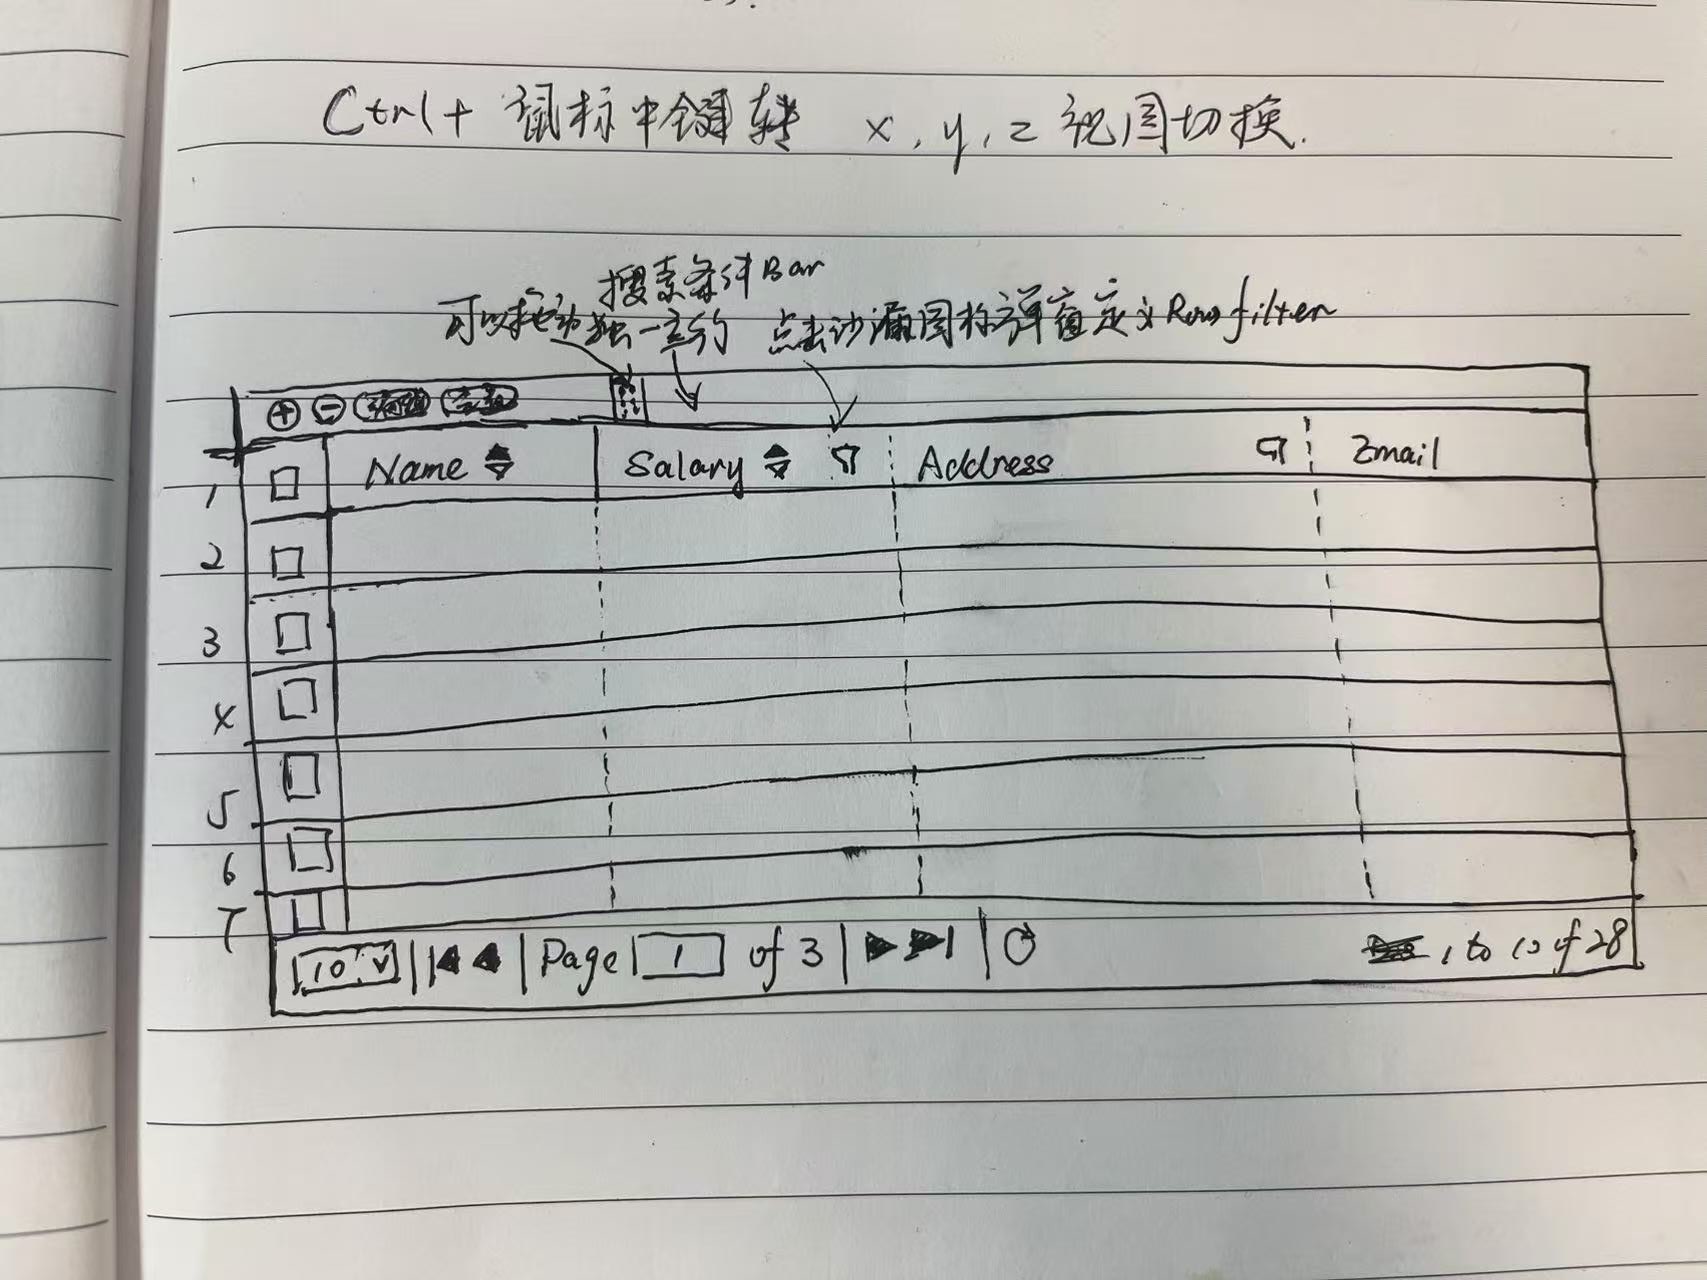 Ctrl + 鼠标中键转 x, y, z 视图切换.
搜索条件Bar
可以拖动独立一行 点击沙漏图标弹自定义Row filter
+ -
Name Salary Address Email
1
2
3
4
5
6
7
10 v Page 1 of 3 1 to 10 of 28